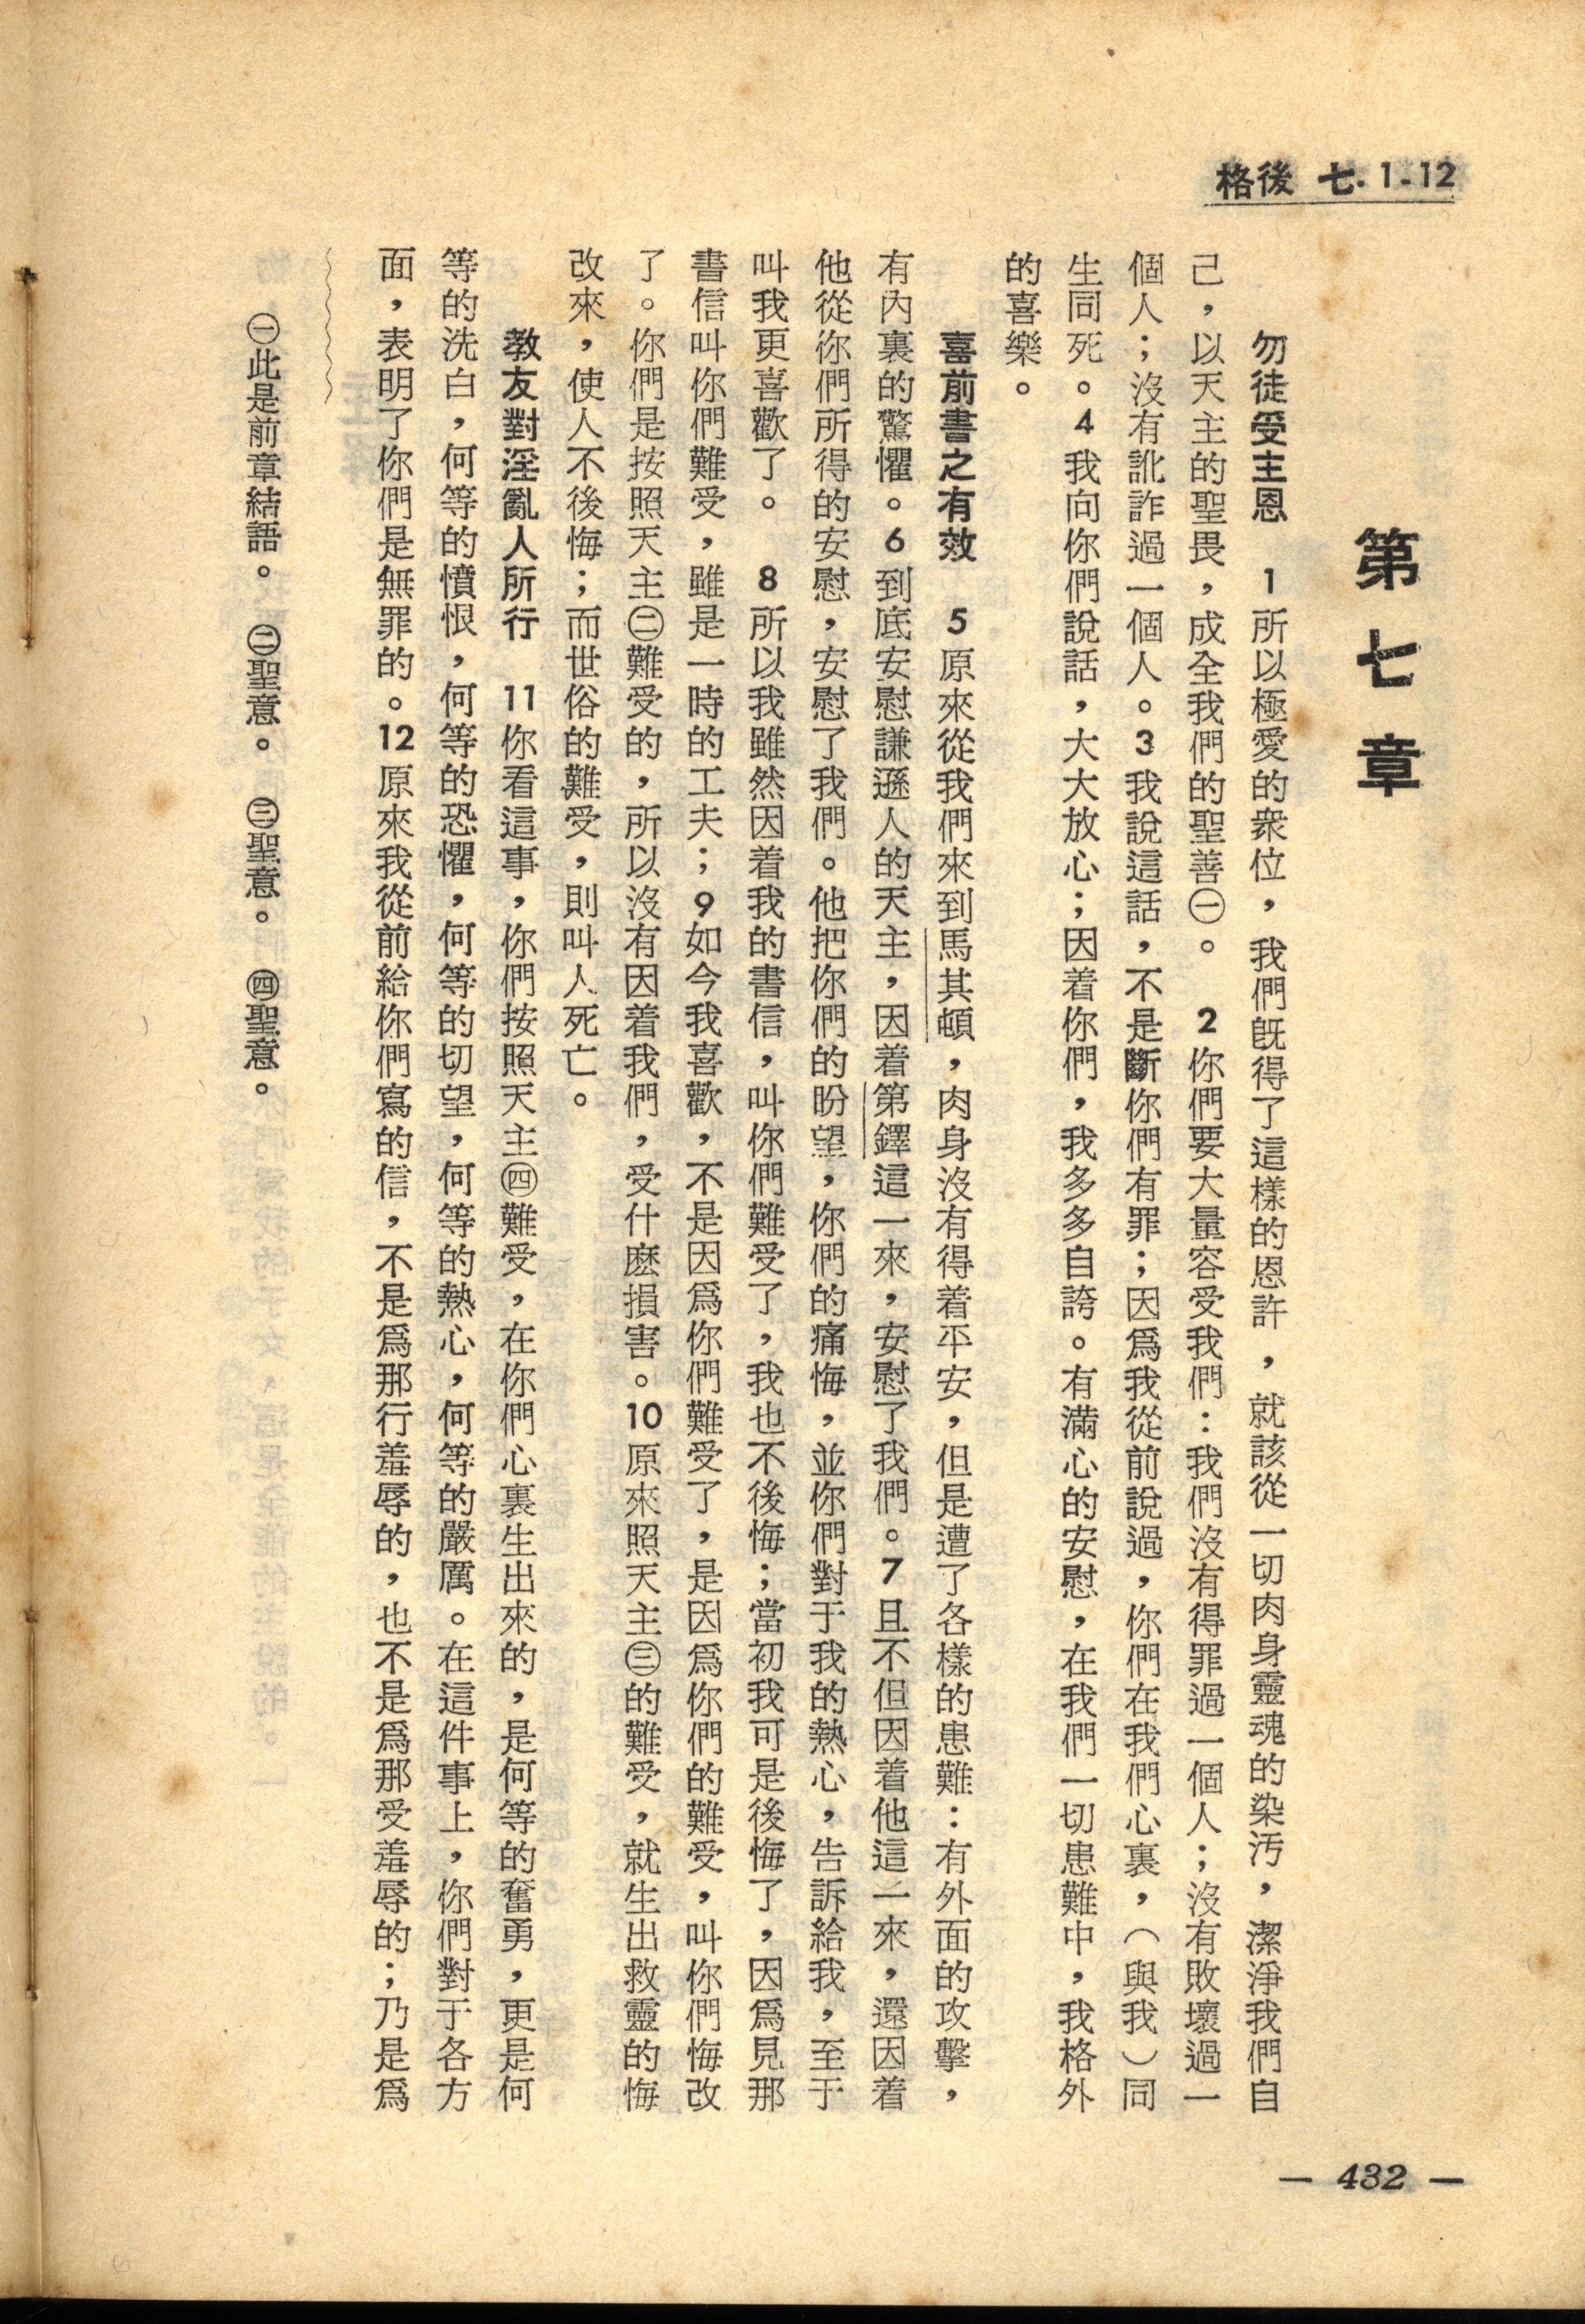 格後 七. 1-12
第七章
勿徒受主恩　1所以極愛的衆位，我們旣得了這樣的恩許，就該從一切肉身靈魂的染汚，潔淨我們自
己，以天主的聖畏，成全我們的聖善㊀。　2你們要大量容受我們：我們沒有得罪過一個人；沒有敗壞過一
個人；沒有訛詐過一個人。3我說這話，不是斷你們有罪；因爲我從前說過，你們在我們心裏，（與我）同
生同死。4我向你們說話，大大放心；因着你們，我多多自誇。有滿心的安慰，在我們一切患難中，我格外
的喜樂。
喜前書之有效　5原來從我們來到馬其頓，肉身沒有得着平安，但是遭了各樣的患難：有外面的攻擊，
有內裏的驚懼。6到底安慰謙遜人的天主，因着第鐸這一來，安慰了我們。7且不但因着他這一來，還因着
他從你們所得的安慰，安慰了我們。他把你們的盼望，你們的痛悔，並你們對于我的熱心，告訴給我，至于
叫我更喜歡了。　8所以我雖然因着我的書信，叫你們難受了，我也不後悔；當初我可是後悔了，因爲見那
書信叫你們難受，雖是一時的工夫；9如今我喜歡，不是因爲你們難受了，是因爲你們的難受，叫你們悔改
了。你們是按照天主㊁難受的，所以沒有因着我們，受什麽損害。10原來照天主㊂的難受，就生出救靈的悔
改來，使人不後悔；而世俗的難受，則叫人死亡。
教友對淫亂人所行　11你看這事，你們按照天主㊃難受，在你們心裏生出來的，是何等的奮勇，更是何
等的洗白，何等的憤恨，何等的恐懼，何等的切望，何等的熱心，何等的嚴厲。在這件事上，你們對于各方
面，表明了你們是無罪的。12原來我從前給你們寫的信，不是爲那行羞辱的，也不是爲那受羞辱的；乃是爲
㊀此是前章結語。　㊁聖意。　㊂聖意。　㊃聖意。
— 432 —